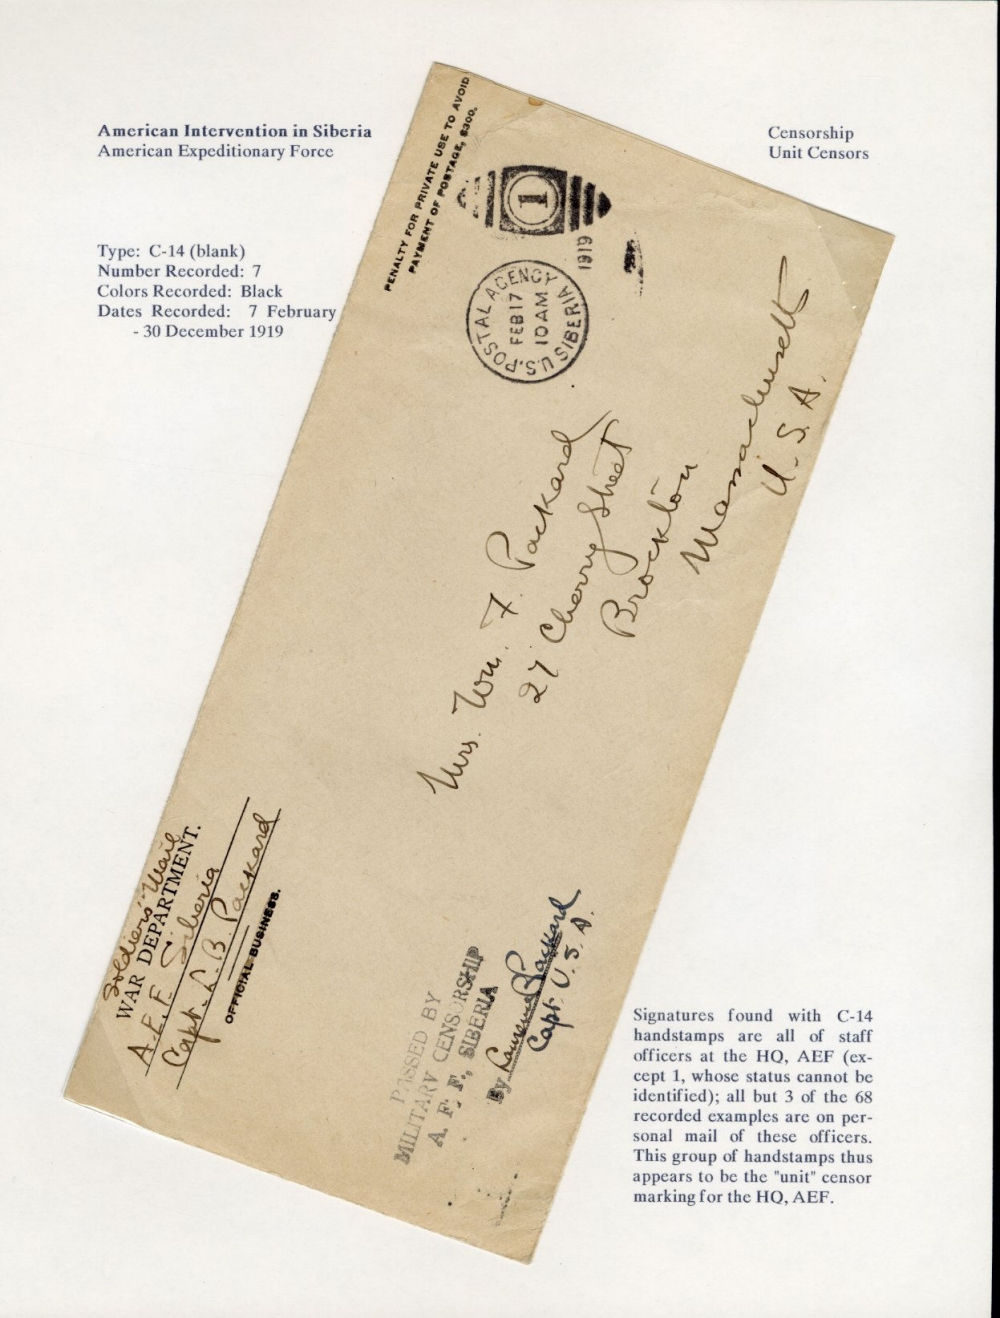 American Intervention in Siberia
American Expeditionary Force
Censorship
Unit Censors
Type: C-14 (blank)
Number Recorded: 7
Colors Recorded: Black
Dates Recorded: 7 February
- 30 December 1919
PENALTY FOR PRIVATE USE TO AVOID
PAYMENT OF POSTAGE, $300.
1
1919
U.S. POSTAL AGENCY
FEB 17
10 AM
SIBERIA
Mrs. Wm. F. Packard
27 Cherry Street
Brockton
Massachusetts
U.S.A.
Soldiers' Mail
WAR DEPARTMENT.
A.E.F. Siberia
Capt. L.B. Packard
OFFICIAL BUSINESS.
PASSED BY
MILITARY CENSORSHIP
A. E. F., SIBERIA
By Laurence B Packard
Capt. U.S.A.
Signatures found with C-14
handstamps are all of staff
officers at the HQ, AEF (ex-
cept 1, whose status cannot be
identified); all but 3 of the 68
recorded examples are on per-
sonal mail of these officers.
This group of handstamps thus
appears to be the "unit" censor
marking for the HQ, AEF.